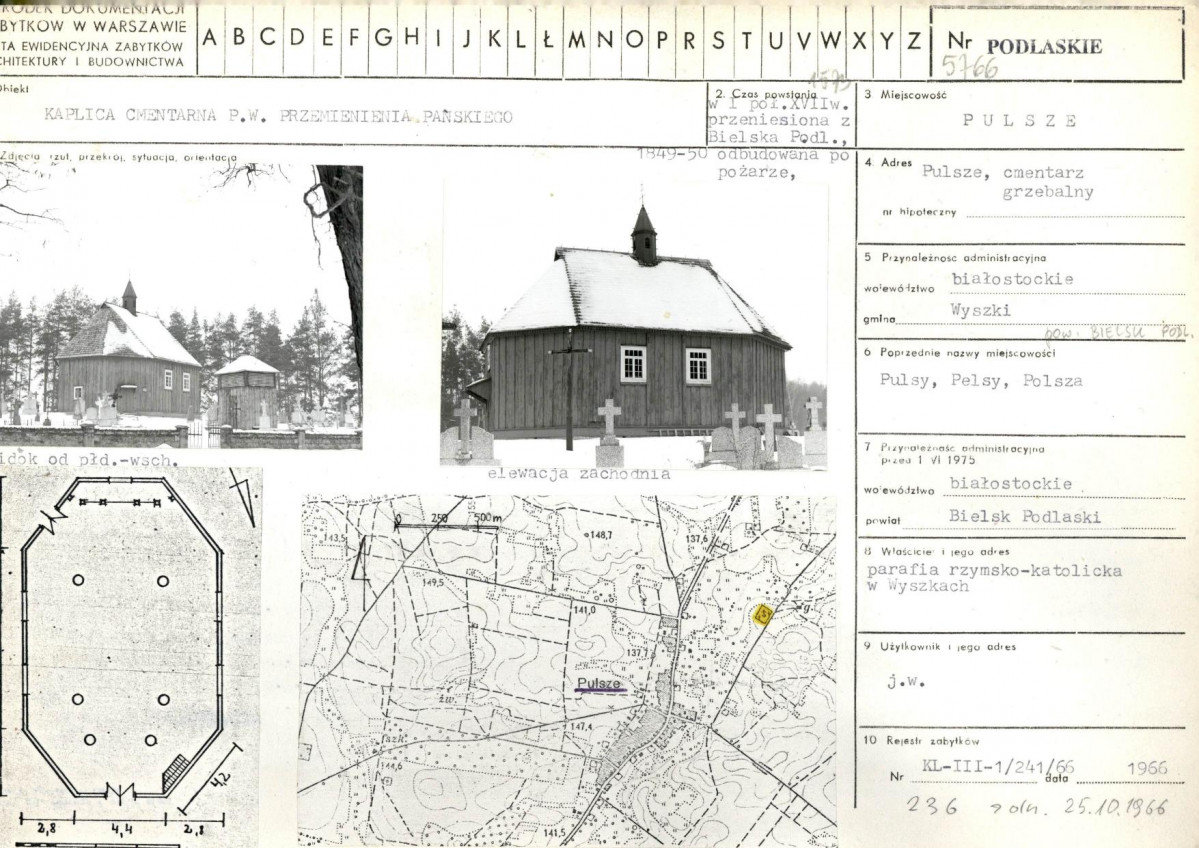 RODEK DOKUMENTACJI
BYTKÓW W WARSZAWIE
TA EWIDENCYJNA ZABYTKÓW
CHITEKTURY I BUDOWNICTWA
A B C D E F G H I J K L Ł M N O P R S T U V W X Y Z
Nr PODLASKIE
5766
Obiekt
KAPLICA CMENTARNA P.W. PRZEMIENIENIA PAŃSKIEGO
1573
2. Czas powstania
w I poł.XVIIw.
przeniesiona z
Bielska Podl.,
1849-50 odbudowana po
pożarze,
3 Miejscowość
PULSZE
Zdjęcia rzut, przekrój, sytuacja, orientacja
4. Adres
Pulsze, cmentarz
grzebalny
nr hipoteczny
5 Przynależność administracyjna
województwo białostockie
gmina Wyszki
pow. BIELSK PODL.
6 Poprzednie nazwy miejscowości
Pulsy, Pelsy, Polsza
7 Przynależność administracyjna
przed 1 VI 1975
województwo białostockie
powiat Bielsk Podlaski
8 Właściciel i jego adres
parafia rzymsko-katolicka
w Wyszkach
9 Użytkownik i jego adres
j.w.
10 Rejestr zabytków
Nr KL-III-1/241/66 data 1966
236 z dn. 25.10.1966
idok od płd.-wsch.
elewacja zachodnia
4,2
2,8 4,4 2,8
0 250 500 m
143,5
148,7
137,6
149,5
141,0
g.
137,7
Pulsze
żw.
147,4
szk.
144,6
141,5